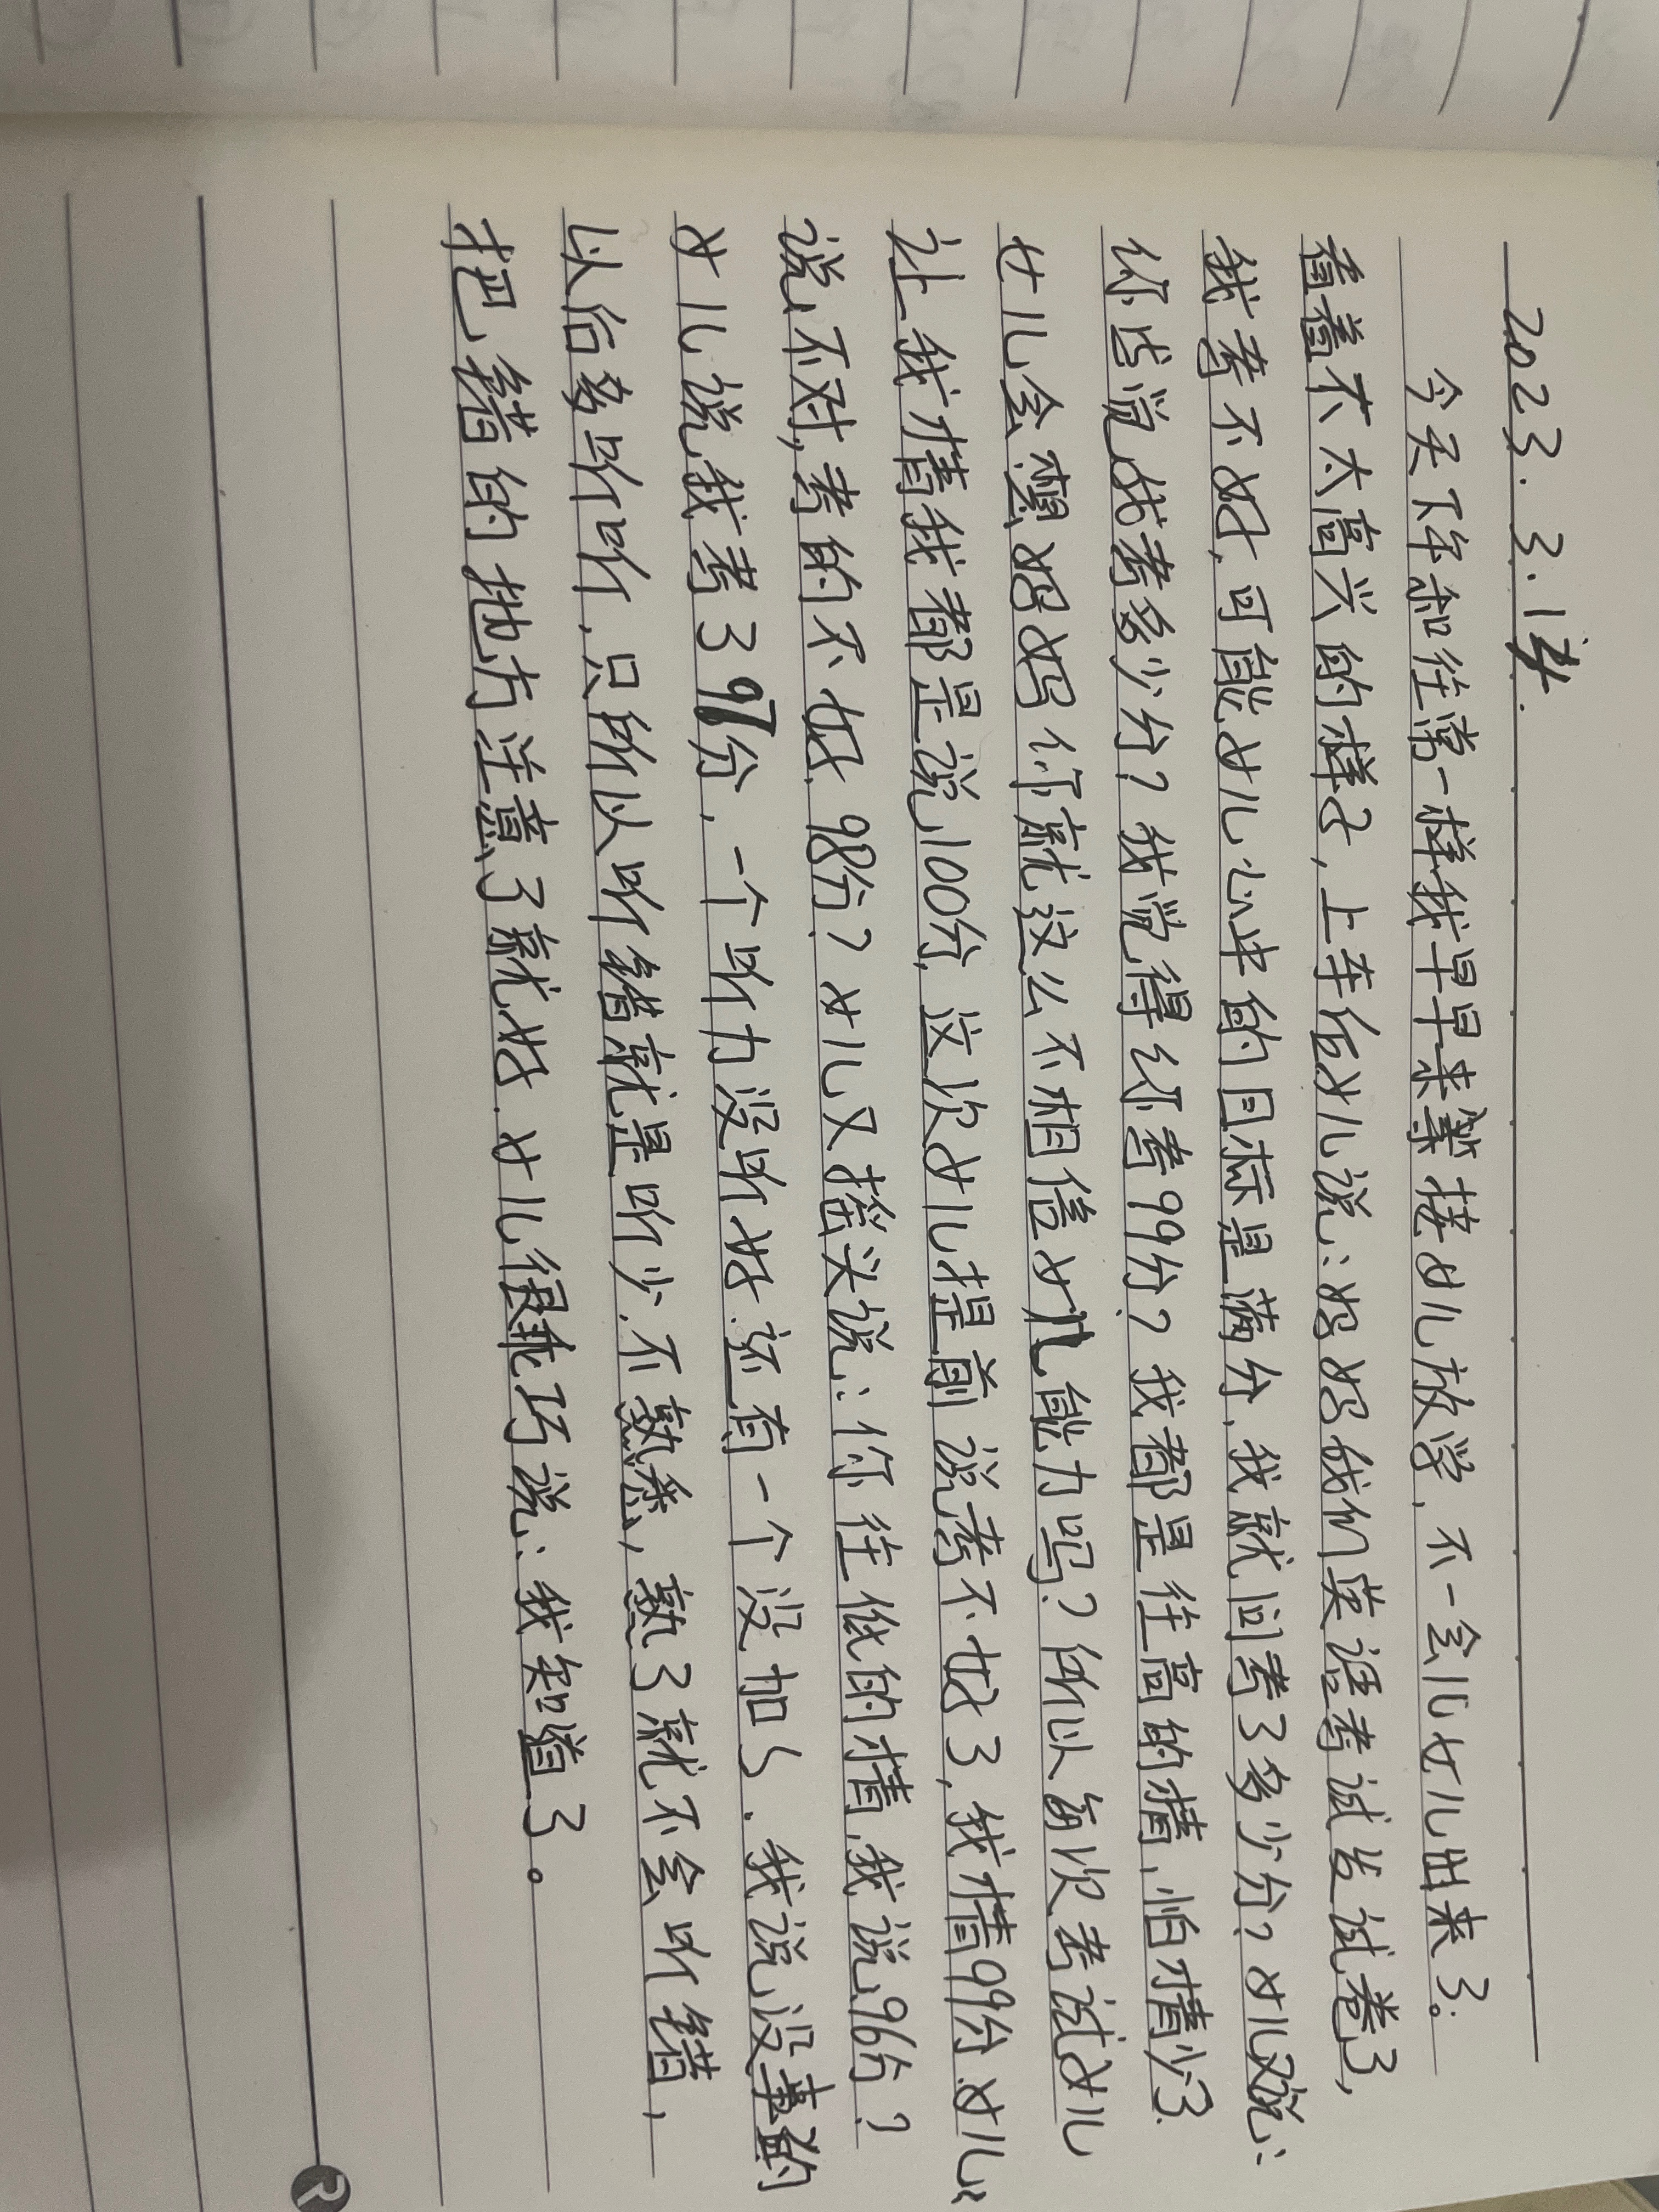 2023.3.14.
今天下午和往常一样我早早来等接女儿放学,不一会儿女儿出来了。
看着不太高兴的样子,上车后女儿说:妈妈我们英语考试发试卷了,
我考不好,可能女儿心中的目标是满分,我就问考了多少分?女儿又说:
你尝说我考多少分?我说得你考99分?我都是往高的猜,怕猜少了
女儿会想妈妈你就这么不相信女儿能力吗?所以每次考试女儿
让我猜我都是说100分,这次女儿提前说考不好了,我猜99分女儿
说不对,考的不好,98分?女儿又摇头说:你往低的猜,我说96分?
女儿说我考了97分,一个听力没听好.还有一个没加s.我说没事的
以后多听听,只所以听错就是听少.不熟悉,熟了就不会听错,
把错的地方注意了就好.女儿很乖巧说:我知道了。